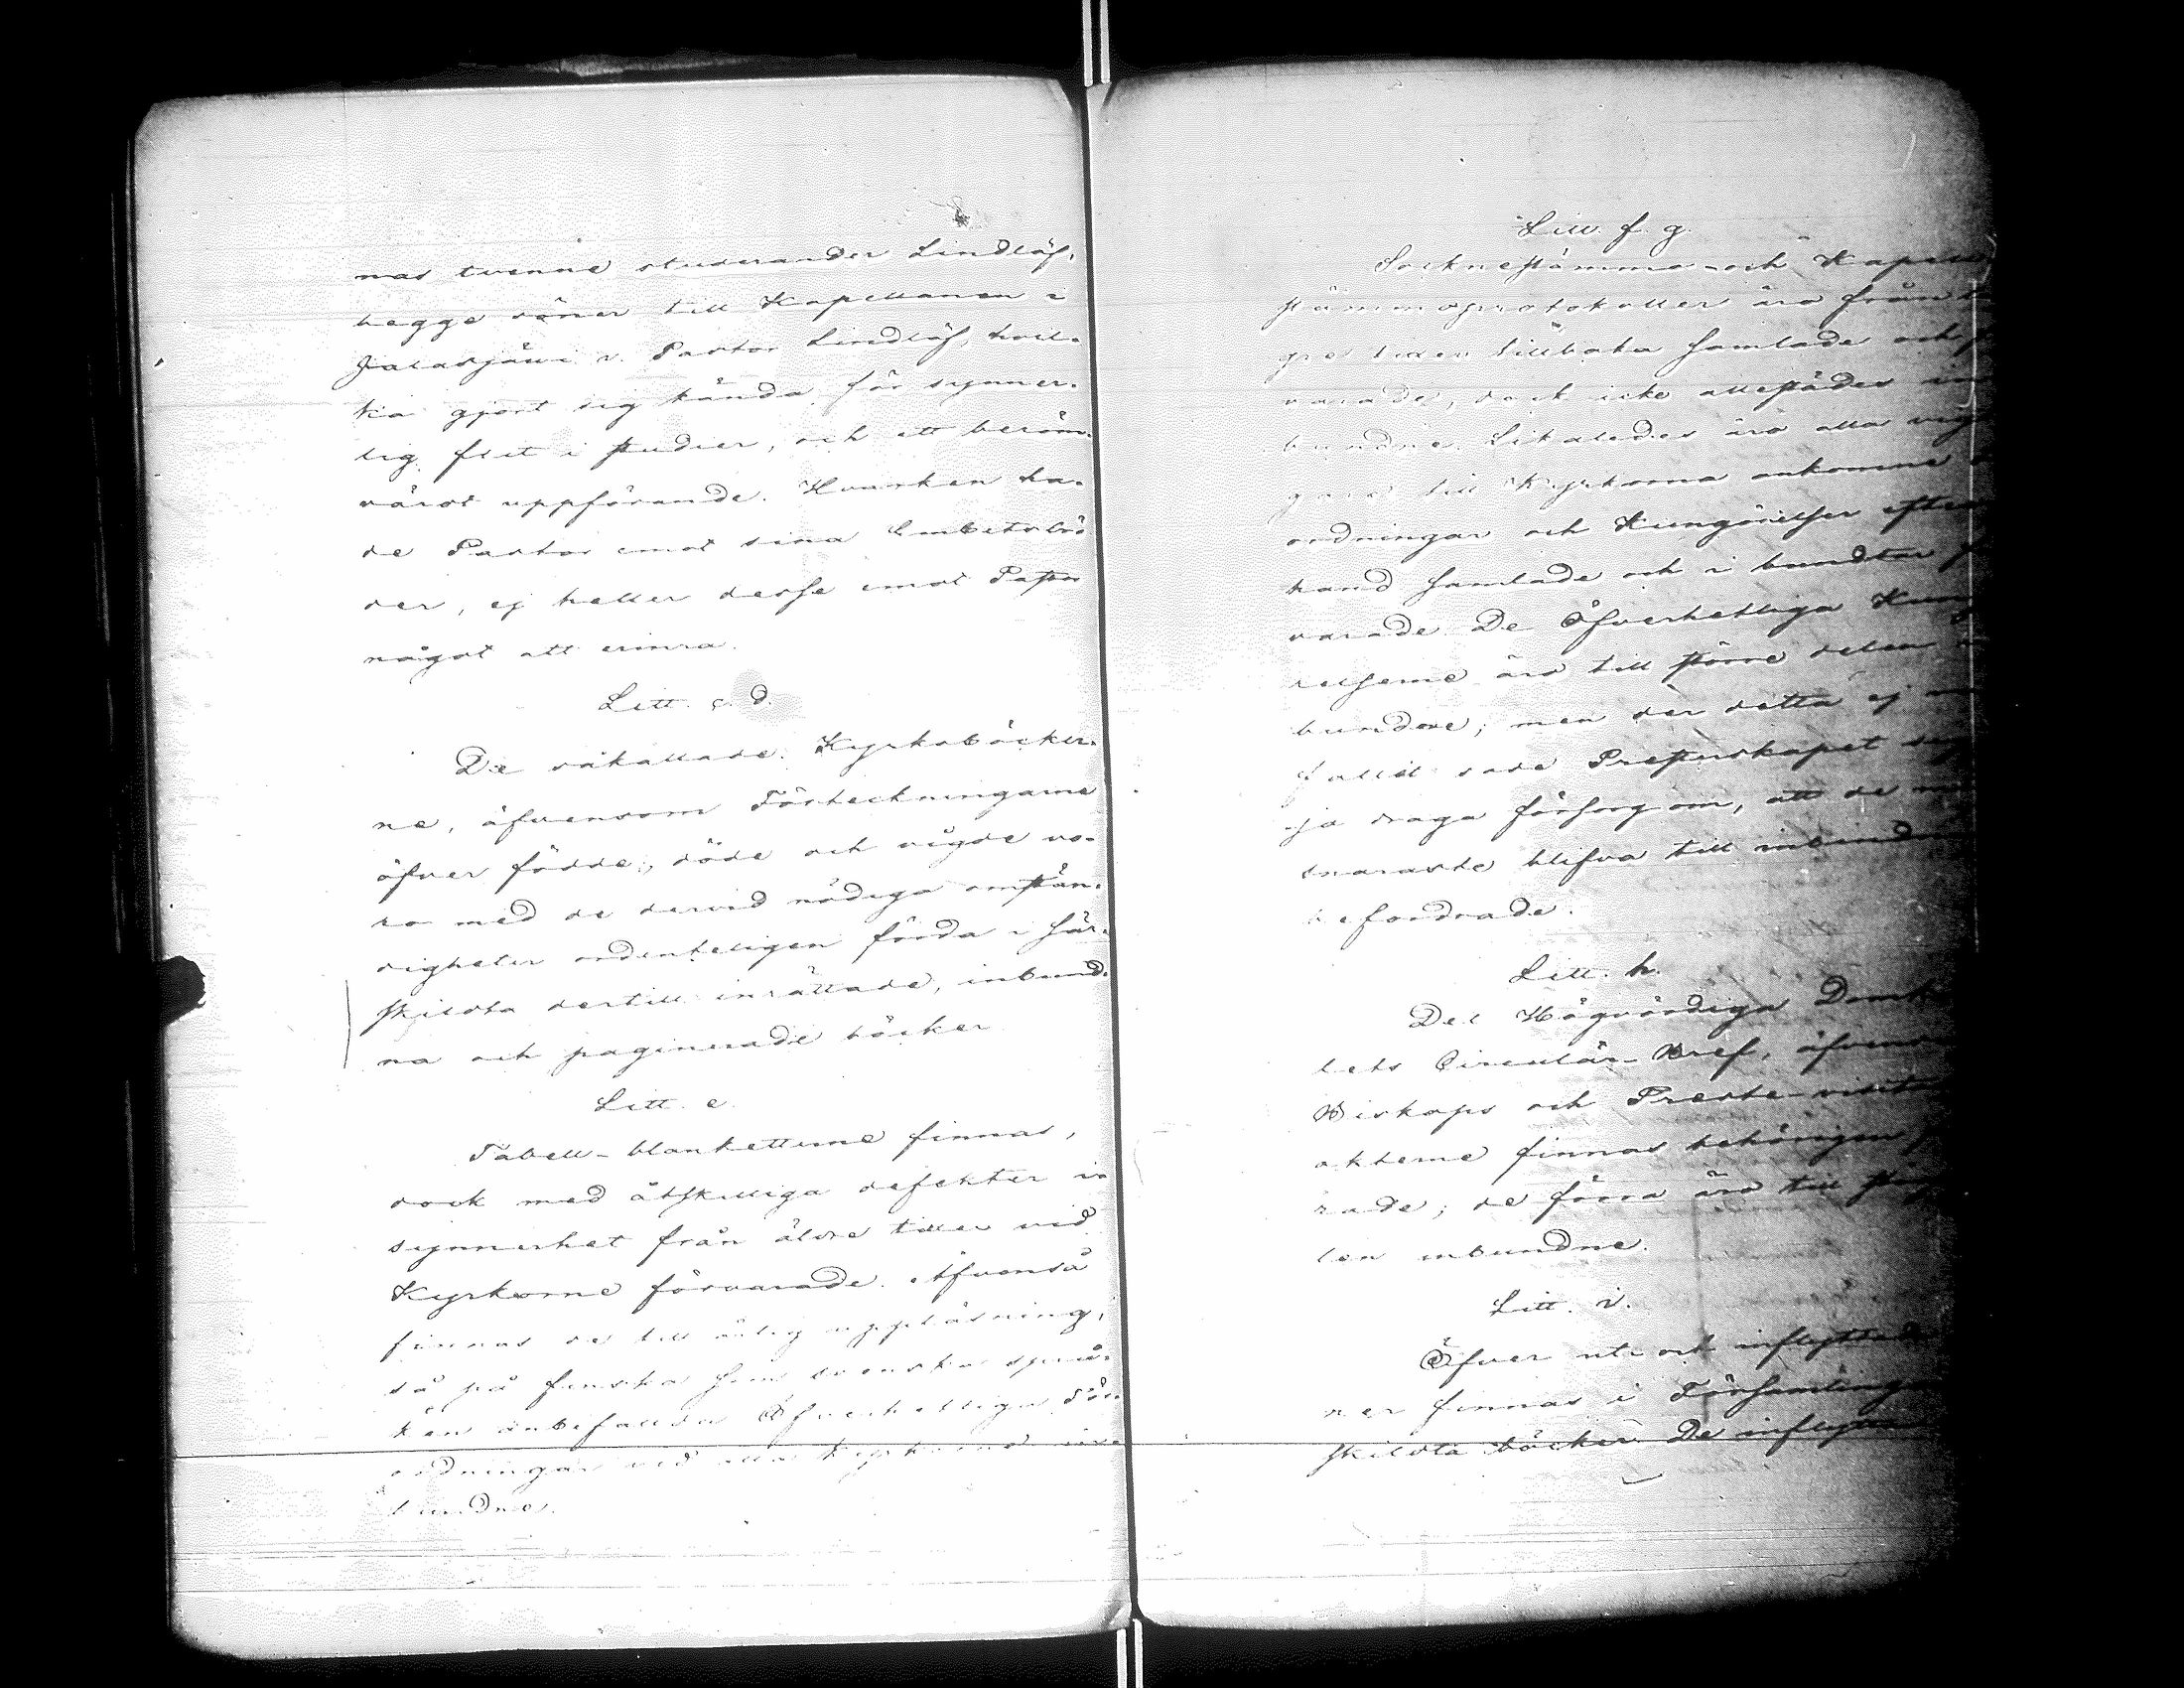 nas tvenne studerander Lindlöf,
begge söner till Kapellanen i
Jalasjärvi v. Pastor Lindlöf, hvil-
ka gjort sig kända för synner-
lig flit i studier, och ett beröm-
värdt uppförande. Hvarken ha-
de Pastor emot sina Embetsbrö
der, ej heller desse emot Pastor
något att erinra.
Litt. c. d.
De såkallade Kyrkoböcker-
ne, äfvensom Förteckningarne
öfver födde, döde och vigde vo-
ro med de dervid nödiga omstän-
digheter ordenteligen förda i sär-
skildta dertill inrättade, inbund-
na och paginerade böcker
Litt. e.
Tabell-blanketterne finnas,
dock med åtskilliga defekter i
synnerhet från äldre tider vid
Kyrkorne förvarade. Äfvenså
finnas de till årlig uppläsning,
så på finska som svenska språ-
ken anbefallda Öfverhetliga För-
ordningar vid alla Kyrkorne in
bundne.
Litt. f. g.
Sockneståmmo- och Kapell
stämmoprotokoller äro från
gre tider tillbaka samlade och
varade, dock icke allestädes in
bundne. Likaledes äro alla
till Kyrkorna ankomne
ordningar och Kungörelser efter
hand samlade och i bundtar
varade. De Öfverhetliga Kung
relserne äro till större delen
bundne; men der detta ej
fallit sade Presterskapet sig
ja draga försorg om, att de
snaraste blifva till inbind
befordrade.
Litt. h.
Det Högvördiga Domk
lets Circulär-Bref, äfvens
Biskops och Preste-visita
akterne finnas behörigen
rade; de förra äro till
len inbundne.
Litt. i.
Öfver ut- och inflyttade
ner finnas i Församlingen
skildta böcker. De inflytta